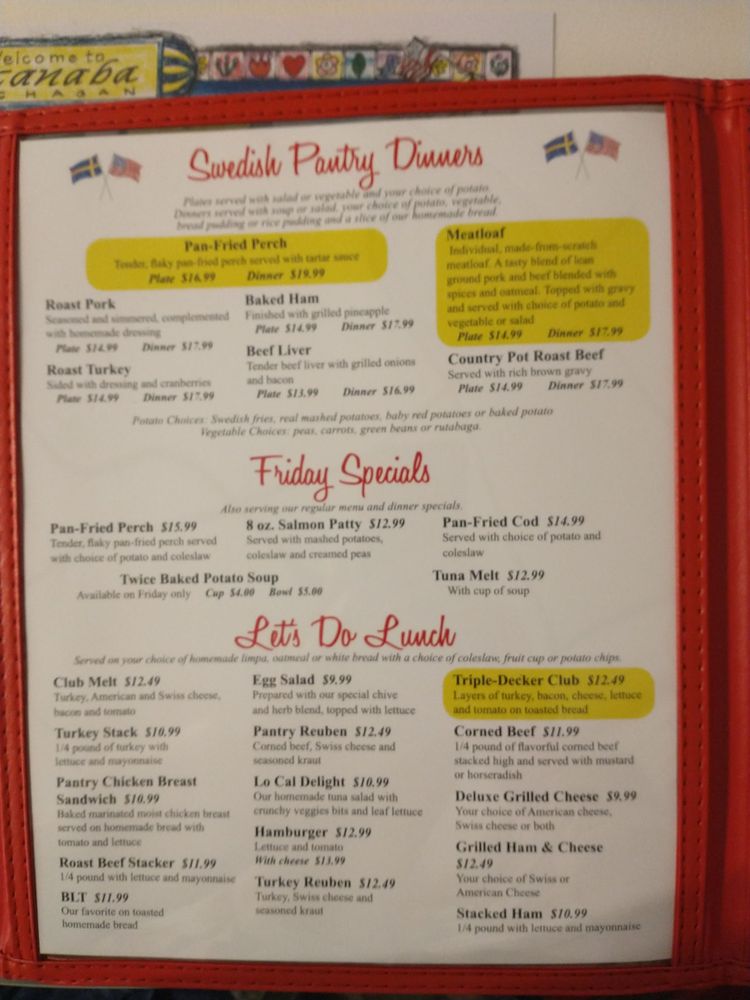 Welcome to
Swedish Pantry Dinners
Plates served with salad or vegetable and your choice of potato.
Dinners served with soup or salad, your choice of potato, vegetable,
bread pudding or rice pudding and a slice of our homemade bread.
Pan-Fried Perch
Tender, flaky pan-fried perch served with tartar sauce
Plate $16.99 Dinner $19.99
Meatloaf
Individual, made-from-scratch
meatloaf. A tasty blend of lean
ground pork and beef blended with
spices and oatmeal. Topped with gravy
and served with choice of potato and
vegetable or salad
Plate $14.99 Dinner $17.99
Roast Pork
Seasoned and simmered, complemented
with homemade dressing
Plate $14.99 Dinner $17.99
Baked Ham
Finished with grilled pineapple
Plate $14.99 Dinner $17.99
Roast Turkey
Sided with dressing and cranberries
Plate $14.99 Dinner $17.99
Beef Liver
Tender beef liver with grilled onions
and bacon
Plate $13.99 Dinner $16.99
Country Pot Roast Beef
Served with rich brown gravy
Plate $14.99 Dinner $17.99
Potato Choices: Swedish fries, real mashed potatoes, baby red potatoes or baked potato
Vegetable Choices: peas, carrots, green beans or rutabaga.
Friday Specials
Also serving our regular menu and dinner specials.
Pan-Fried Perch $15.99
Tender, flaky pan-fried perch served
with choice of potato and coleslaw
8 oz. Salmon Patty $12.99
Served with mashed potatoes,
coleslaw and creamed peas
Pan-Fried Cod $14.99
Served with choice of potato and
coleslaw
Twice Baked Potato Soup
Available on Friday only Cup $4.00 Bowl $5.00
Tuna Melt $12.99
With cup of soup
Let's Do Lunch
Served on your choice of homemade limpa, oatmeal or white bread with a choice of coleslaw, fruit cup or potato chips.
Club Melt $12.49
Turkey, American and Swiss cheese,
bacon and tomato
Turkey Stack $10.99
1/4 pound of turkey with
lettuce and mayonnaise
Pantry Chicken Breast
Sandwich $10.99
Baked marinated moist chicken breast
served on homemade bread with
tomato and lettuce
Roast Beef Stacker $11.99
1/4 pound with lettuce and mayonnaise
BLT $11.99
Our favorite on toasted
homemade bread
Egg Salad $9.99
Prepared with our special chive
and herb blend, topped with lettuce
Pantry Reuben $12.49
Corned beef, Swiss cheese and
seasoned kraut
Lo Cal Delight $10.99
Our homemade tuna salad with
crunchy veggies bits and leaf lettuce
Hamburger $12.99
Lettuce and tomato
With cheese $13.99
Turkey Reuben $12.49
Turkey, Swiss cheese and
seasoned kraut
Triple-Decker Club $12.49
Layers of turkey, bacon, cheese, lettuce
and tomato on toasted bread
Corned Beef $11.99
1/4 pound of flavorful corned beef
stacked high and served with mustard
or horseradish
Deluxe Grilled Cheese $9.99
Your choice of American cheese,
Swiss cheese or both
Grilled Ham & Cheese
$12.49
Your choice of Swiss or
American Cheese
Stacked Ham $10.99
1/4 pound with lettuce and mayonnaise